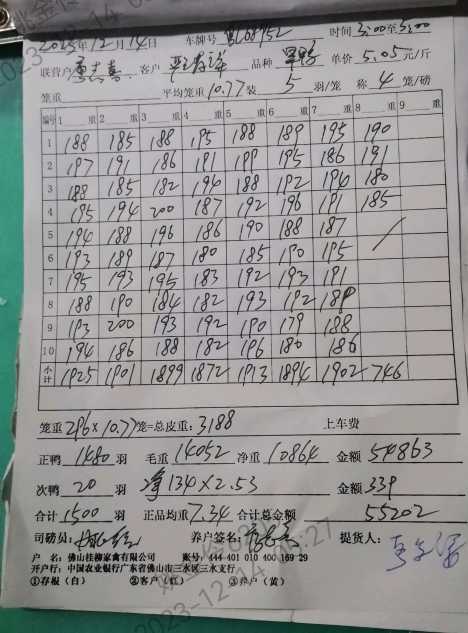 2023年12月14日 车牌号 时间 3:00至5:00
联营户 客户 品种 单价 5.05 元/斤
笼重 平均笼重 10.77 装 5 羽/笼 称 4 笼/磅
编号 1 重 2 重 3 重 4 重 5 重 6 重 7 重 8 重 9 重
1 188 185 188 195 188 189 195 190
2 197 191 186 191 199 195 186 191
3 188 185 182 194 188 192 194 180
4 195 194 200 187 192 196 191 185
5 194 188 196 186 190 188 187
6 193 189 187 180 185 190 195
7 195 193 195 183 192 193 191
8 188 190 184 182 193 192 189
9 193 200 193 192 190 179 188
10 194 186 188 182 196 180 186
小计 1925 1901 1899 1872 1913 1894 1902 746
笼重 296×10.77 笼=总皮重: 3188 上车费
正鸭 1480 羽 毛重 14052 净重 10864 金额 54863
次鸭 20 羽 134×2.53 金额 339
合计 1500 羽 正品均重 7.34 合计总金额 55202
司磅员: 养户签名: 提货人:
户 名: 佛山桂柳家禽有限公司 账号: 444 401 010 400 169 29
开户行: 中国农业银行广东省佛山市三水区三水支行
①存根(白) ②客户(红) ③养户(黄)